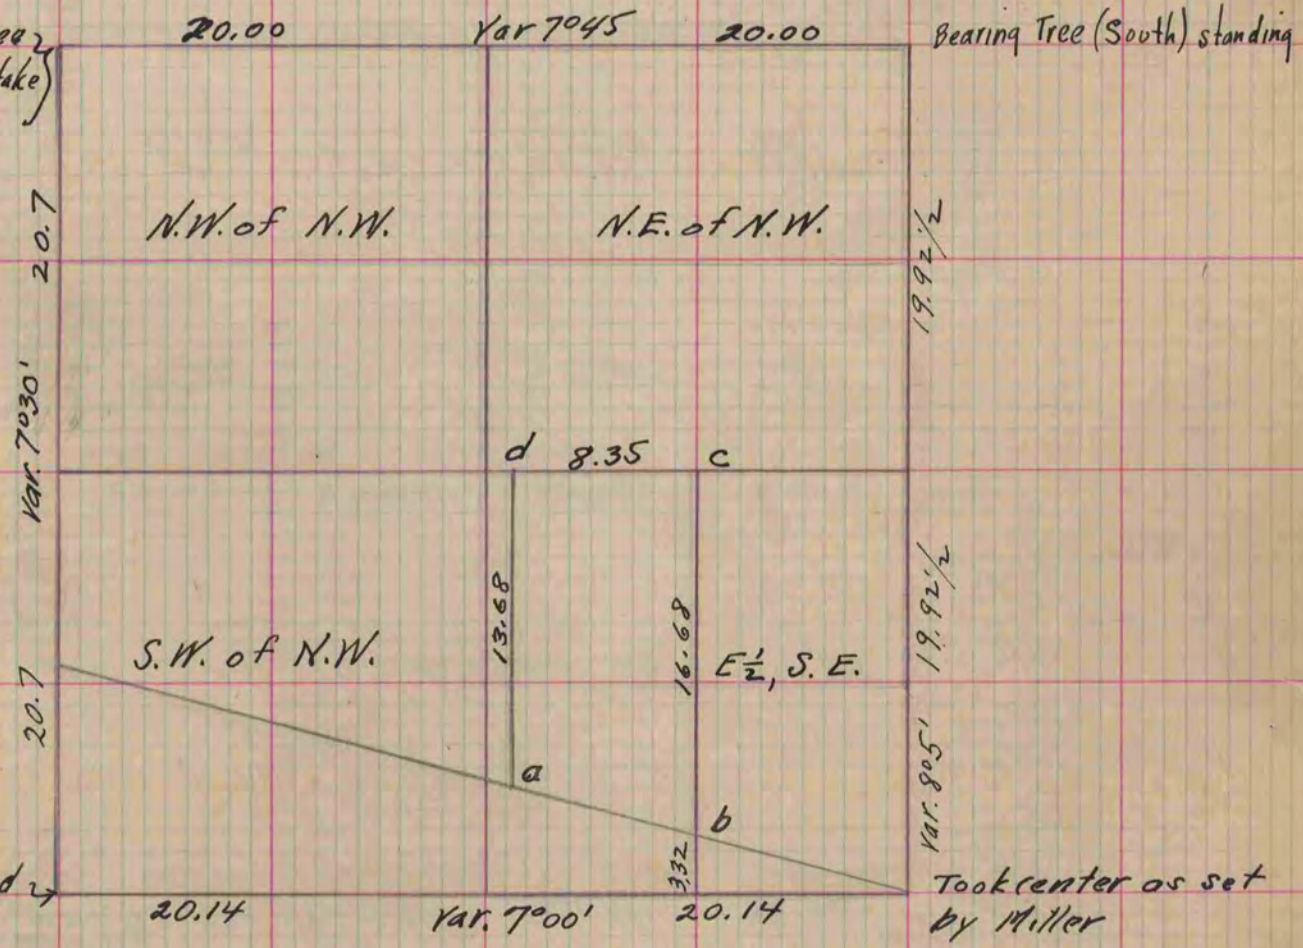 20.00 Var 7°45 20.00 Bearing Tree (South) standing
take
20.7
N.W. of N.W.
N.E. of N.W.
19.92 1/2
Var. 7°30'
d 8.35 c
13.68
16.68
19.92 1/2
S.W. of N.W.
E 1/2, S. E.
20.7
a
b
Var. 8°5'
3.32
d
20.14 Var. 7°00' 20.14
Took center as set
by Miller